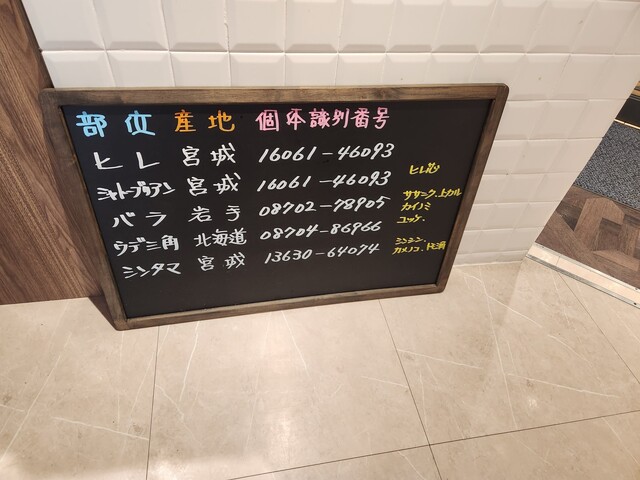 部位 産地 個体識別番号
ヒレ 宮城 16061-46093
シャトーブリアン 宮城 16061-46093
バラ 岩手 08702-78905
ウデ三角 北海道 08704-86966
シンタマ 宮城 13630-64074
ササニク.上カルビ
カイノミ
ユッケ.
シンシン.